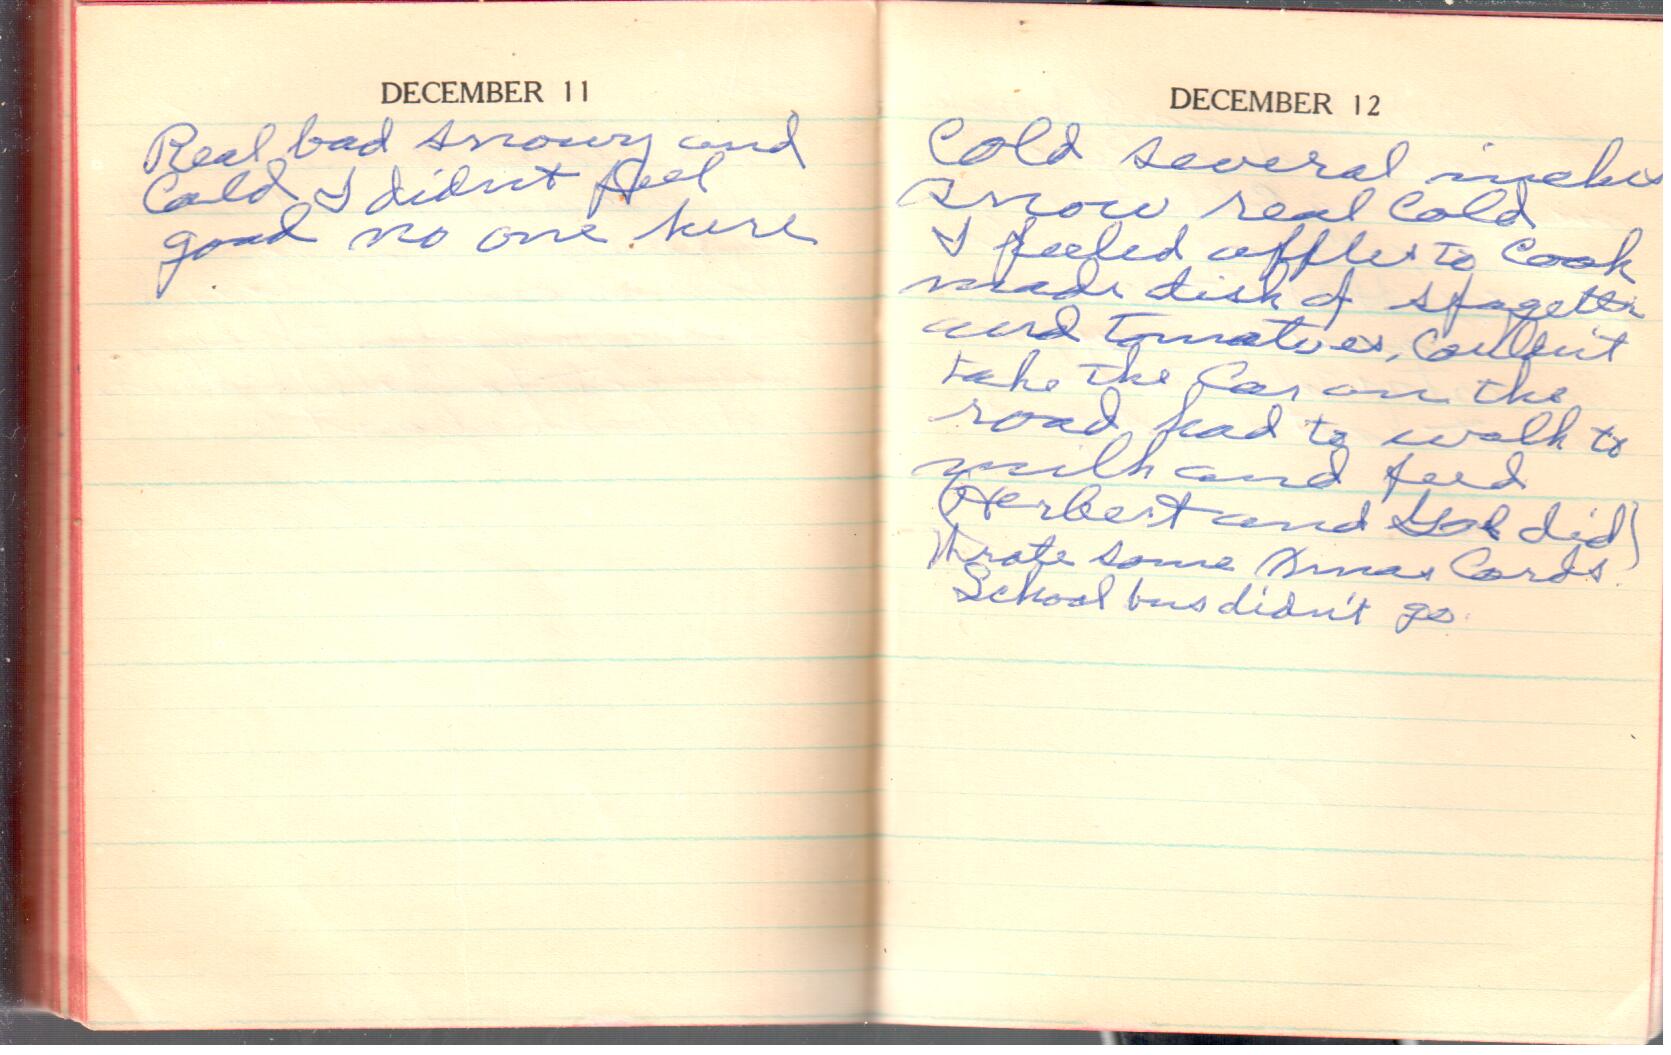 DECEMBER 11
Real bad snowy and
Cold I didnt feel
good no one here
DECEMBER 12
Cold several inches
snow real Cold
I peeled apples to Cook
made dish of spagetti
and Tomatoes, Couldn't
take the Car on the
road had to walk to
milk and feed
(Herbert and did)
Wrote some Xmas Cards.
School bus didn't go.